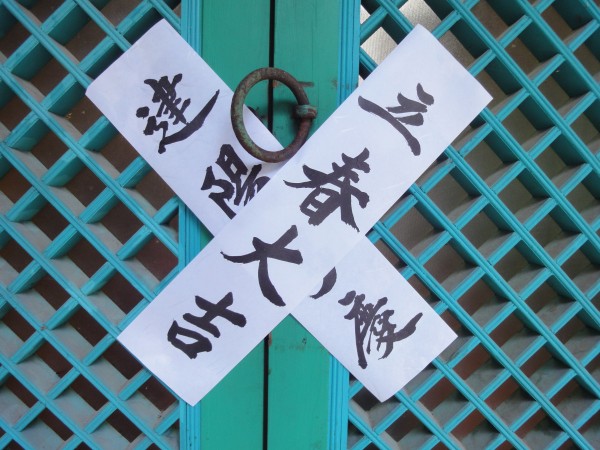 立春大吉
建陽 慶